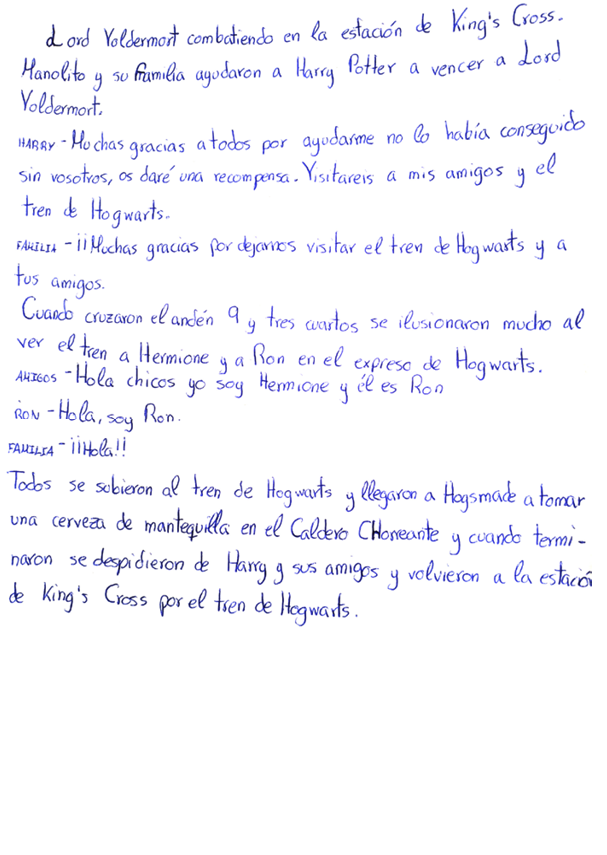 Lord Voldermort combatiendo en la estación de King's Cross.
Manolito y su familia ayudaron a Harry Potter a vencer a Lord
Voldermort.
HARRY - Muchas gracias a todos por ayudarme no lo había conseguido
sin vosotros, os daré una recompensa. Visitareis a mis amigos y el
tren de Hogwarts.
FAMILIA - ¡¡Muchas gracias por dejarnos visitar el tren de Hogwarts y a
tus amigos.
Cuando cruzaron el andén 9 y tres cuartos se ilusionaron mucho al
ver el tren a Hermione y a Ron en el expreso de Hogwarts.
AMIGOS - Hola chicos yo soy Hermione y él es Ron
RON - Hola, soy Ron.
FAMILIA - ¡¡Hola!!
Todos se subieron al tren de Hogwarts y llegaron a Hogsmade a tomar
una cerveza de mantequilla en el Caldero CHorreante y cuando termi-
naron se despidieron de Harry y sus amigos y volvieron a la estación
de King's Cross por el tren de Hogwarts.